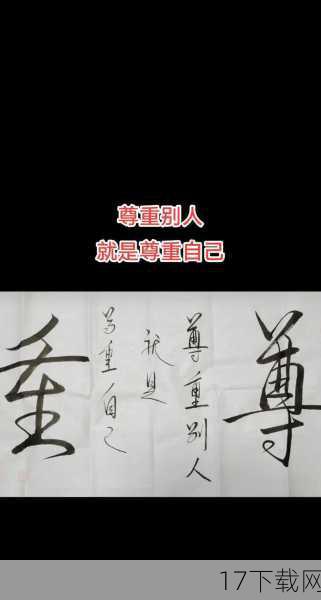 尊重别人
就是尊重自己
尊
尊重别人
就是
尊重自己
重
17下载网